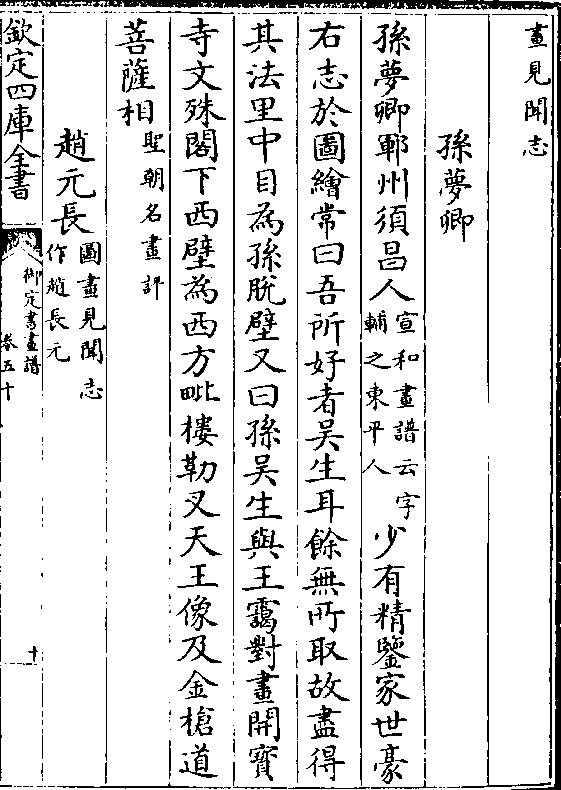 畫見聞志
孫夢卿
孫夢卿鄆州須昌人宣和畫譜云字輔之東平人少有精鑒家世豪
右志於圖繪常曰吾所好者吳生耳餘無所取故盡得
其法里中目為孫脫壁又曰孫吳生與王靄對畫開寳
寺文殊閣下西壁為西方毗樓勒叉天王像及金槍道
菩薩相聖朝名畫評
趙元長圖畫見聞志作趙長元
欽定四庫全書
御定書畫譜
卷五十
十